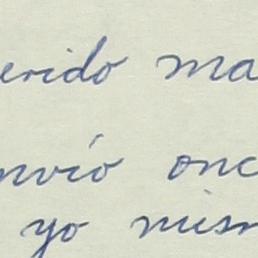 erido ma
nvío onc
yo mism